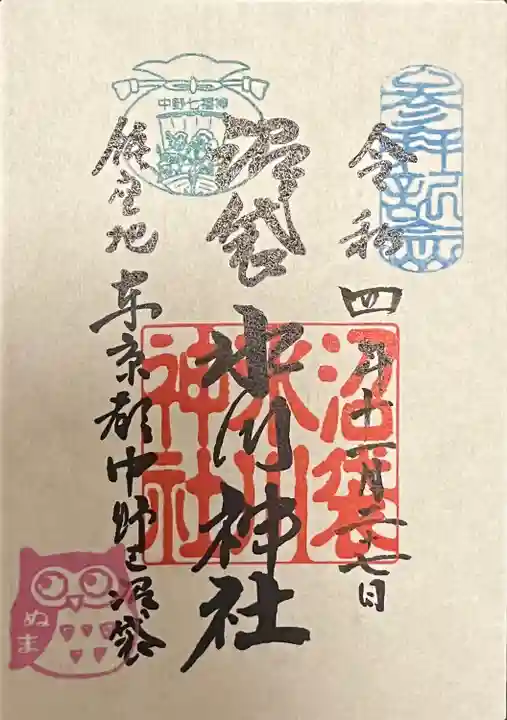 参拝記念
令和四年十一月二十七日
中野七福神
沼袋氷川神社
沼袋氷川神社
鎮座地 東京都中野区沼袋
ぬま